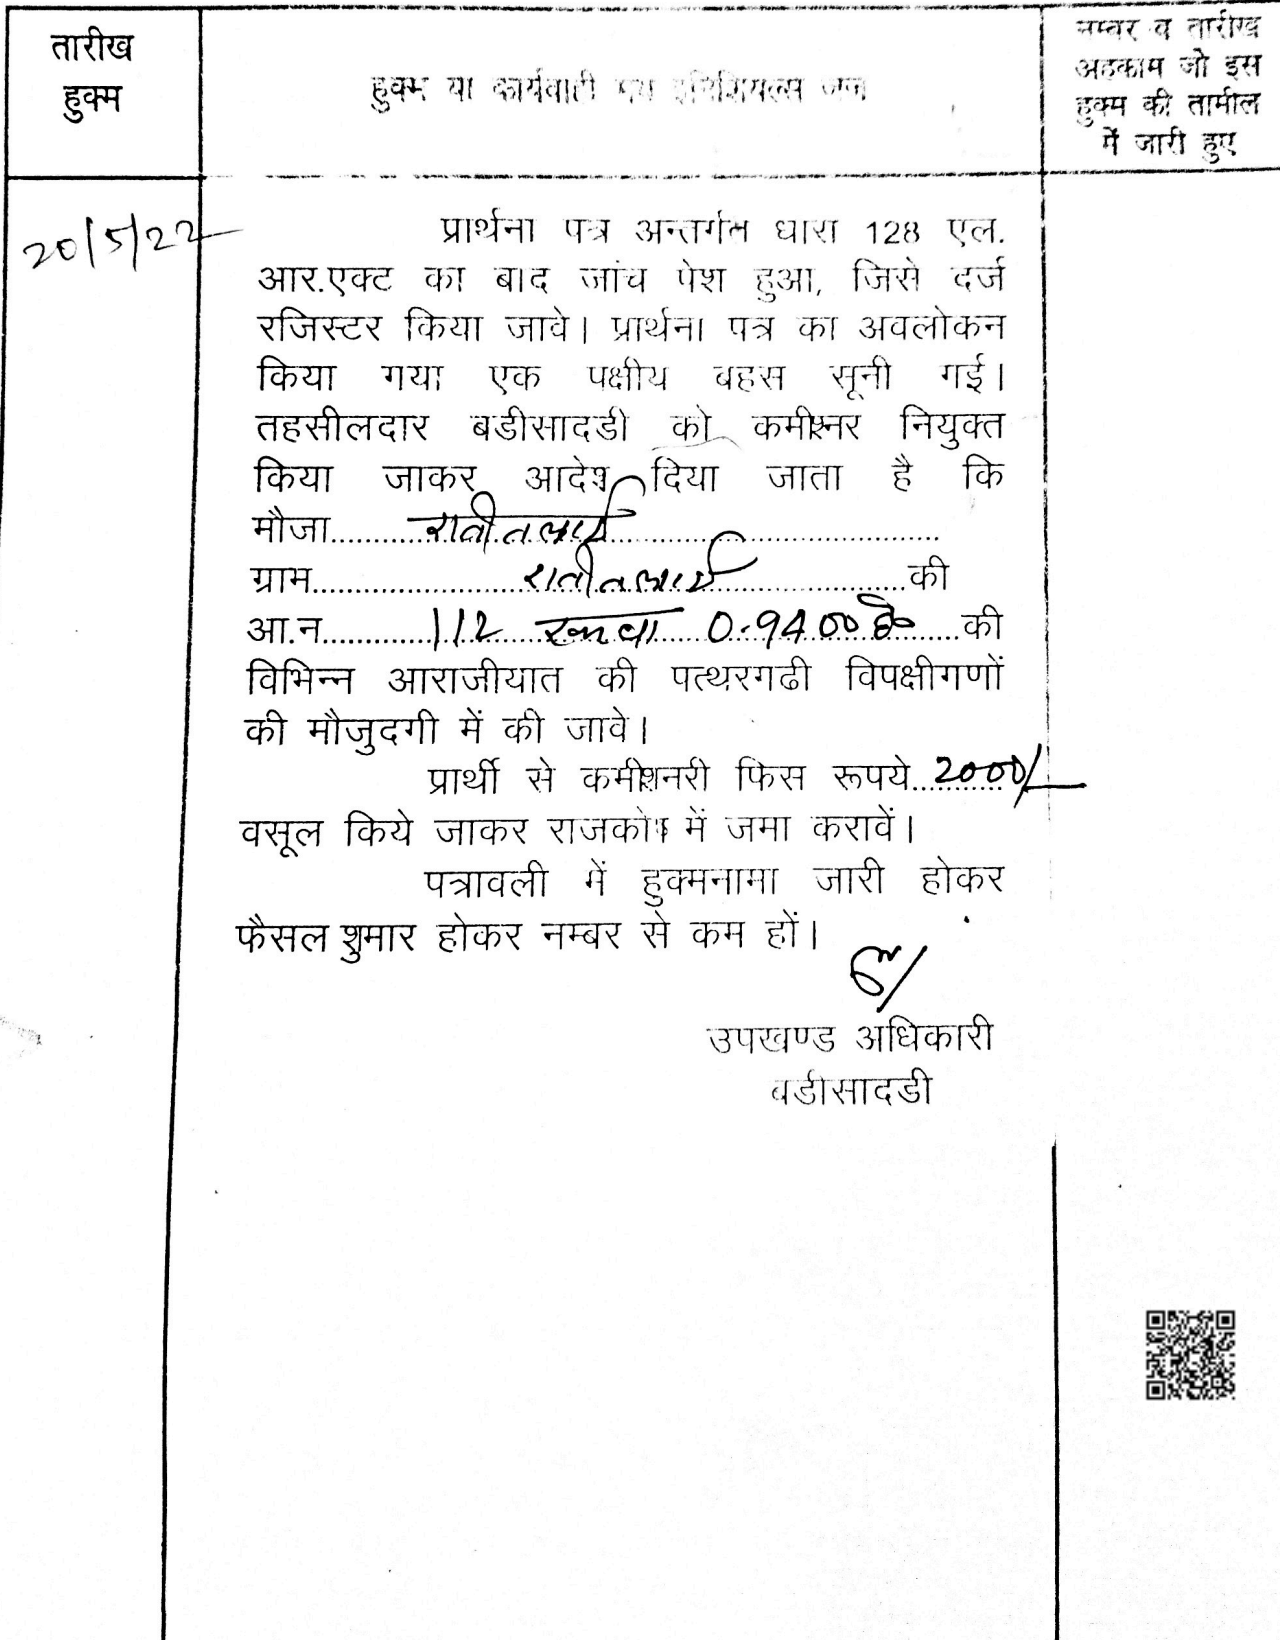 तारीख
हुक्म
हुक्म या कार्यवाही मय इनिशियल्स जज
नम्बर व तारीख
अहकाम जो इस
हुक्म की तामील
में जारी हुए
20/5/22
प्रार्थना पत्र अन्तर्गत धारा 128 एल.
आर.एक्ट का बाद जांच पेश हुआ, जिसे दर्ज
रजिस्टर किया जावे। प्रार्थना पत्र का अवलोकन
किया गया एक पक्षीय बहस सूनी गई।
तहसीलदार बडीसादडी को कमीश्नर नियुक्त
किया जाकर आदेश दिया जाता है कि
मौजा.......रातीतलाई.......
ग्राम.......रातीतलाई.......की
आ.न.......112 रकबा 0.9400 है.......की
विभिन्न आराजीयात की पत्थरगढी विपक्षीगणों
की मौजुदगी में की जावे।
प्रार्थी से कमीशनरी फिस रूपये..2000/-
वसूल किये जाकर राजकोष में जमा करावें।
पत्रावली में हुक्मनामा जारी होकर
फैसल शुमार होकर नम्बर से कम हों।
उपखण्ड अधिकारी
बडीसादडी